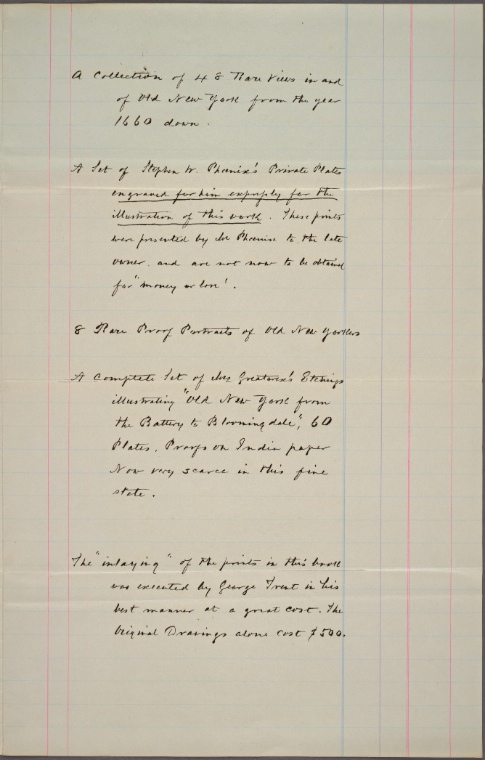 A Collection of 48 Rare Views in and
of Old New York from the year
1660 down.
A Set of Stephen W. Phoenix's Private Plates
engraved for him expressly for the
illustration of this work. These prints
were presented by Mr Phoenix to the late
owner. and are not now to be obtained
for "money or love'.
8 Rare Proof Portraits of Old New Yorkers
A Complete Set of Mrs Greatorex's Etchings
illustrating "Old New York from
the Battery to Bloomingdale", 60
Plates, Proofs on India paper
Now very scarce in this fine
state.
The "inlaying" of the prints in this book
was executed by George Trent in his
best manner at a great cost. The
Original Drawings alone cost $500.